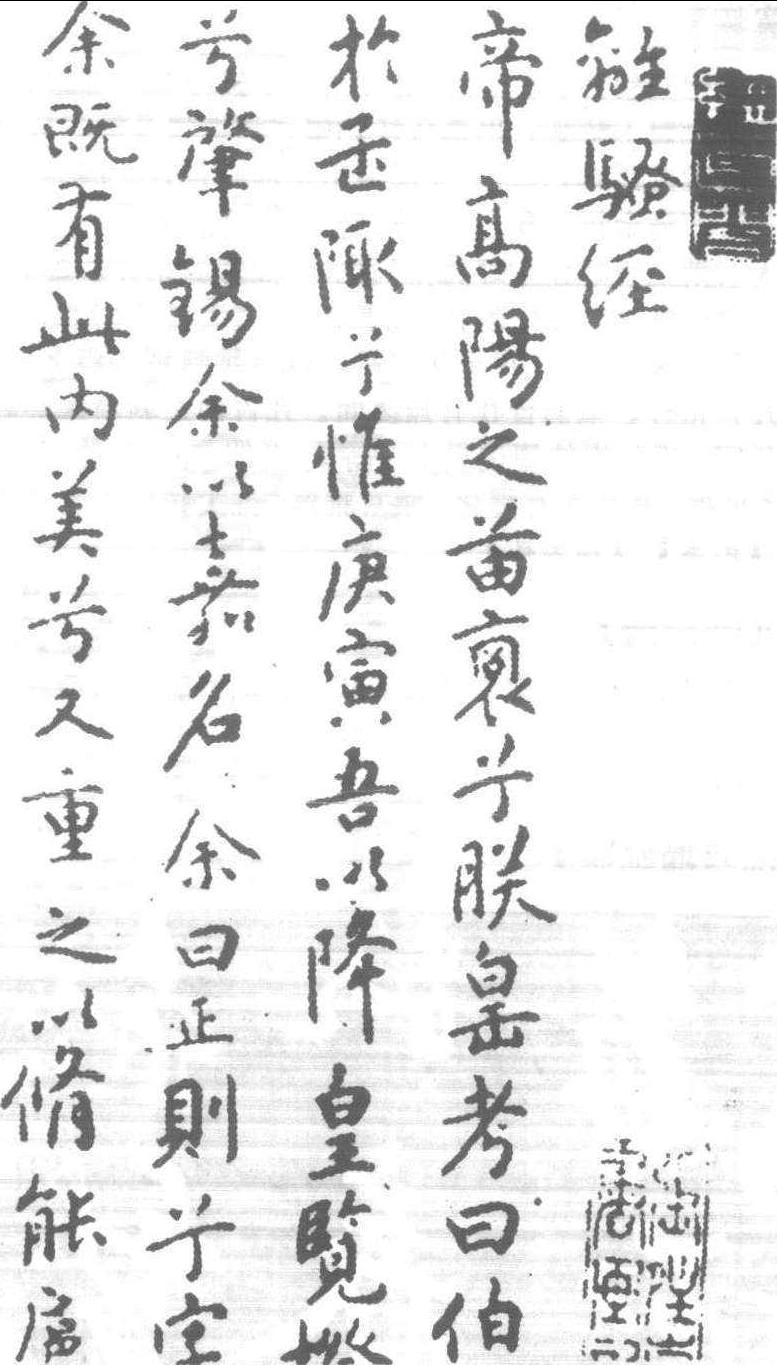 離騷經
帝高陽之苗裔兮朕皇考曰伯
於孟陬兮惟庚寅吾以降皇覽揆
兮肇錫余以嘉名余曰正則兮字
余既有此内美兮又重之以脩能扈